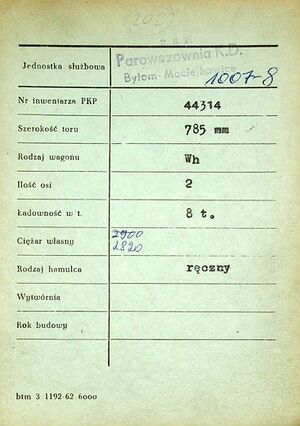 (202)
P.K.P.
Parowozownia K.D.
Jednostka służbowa
Bytom-Maciejkowice
1007-8
Nr inwentarza PKP 44314
Szerokość toru 785 mm
Rodzaj wagonu Wh
Ilość osi 2
Ładowność w t. 8 t.
Ciężar własny 2900
2820
Rodzaj hamulca ręczny
Wytwórnia
Rok budowy
btm 3 1192 62 6000